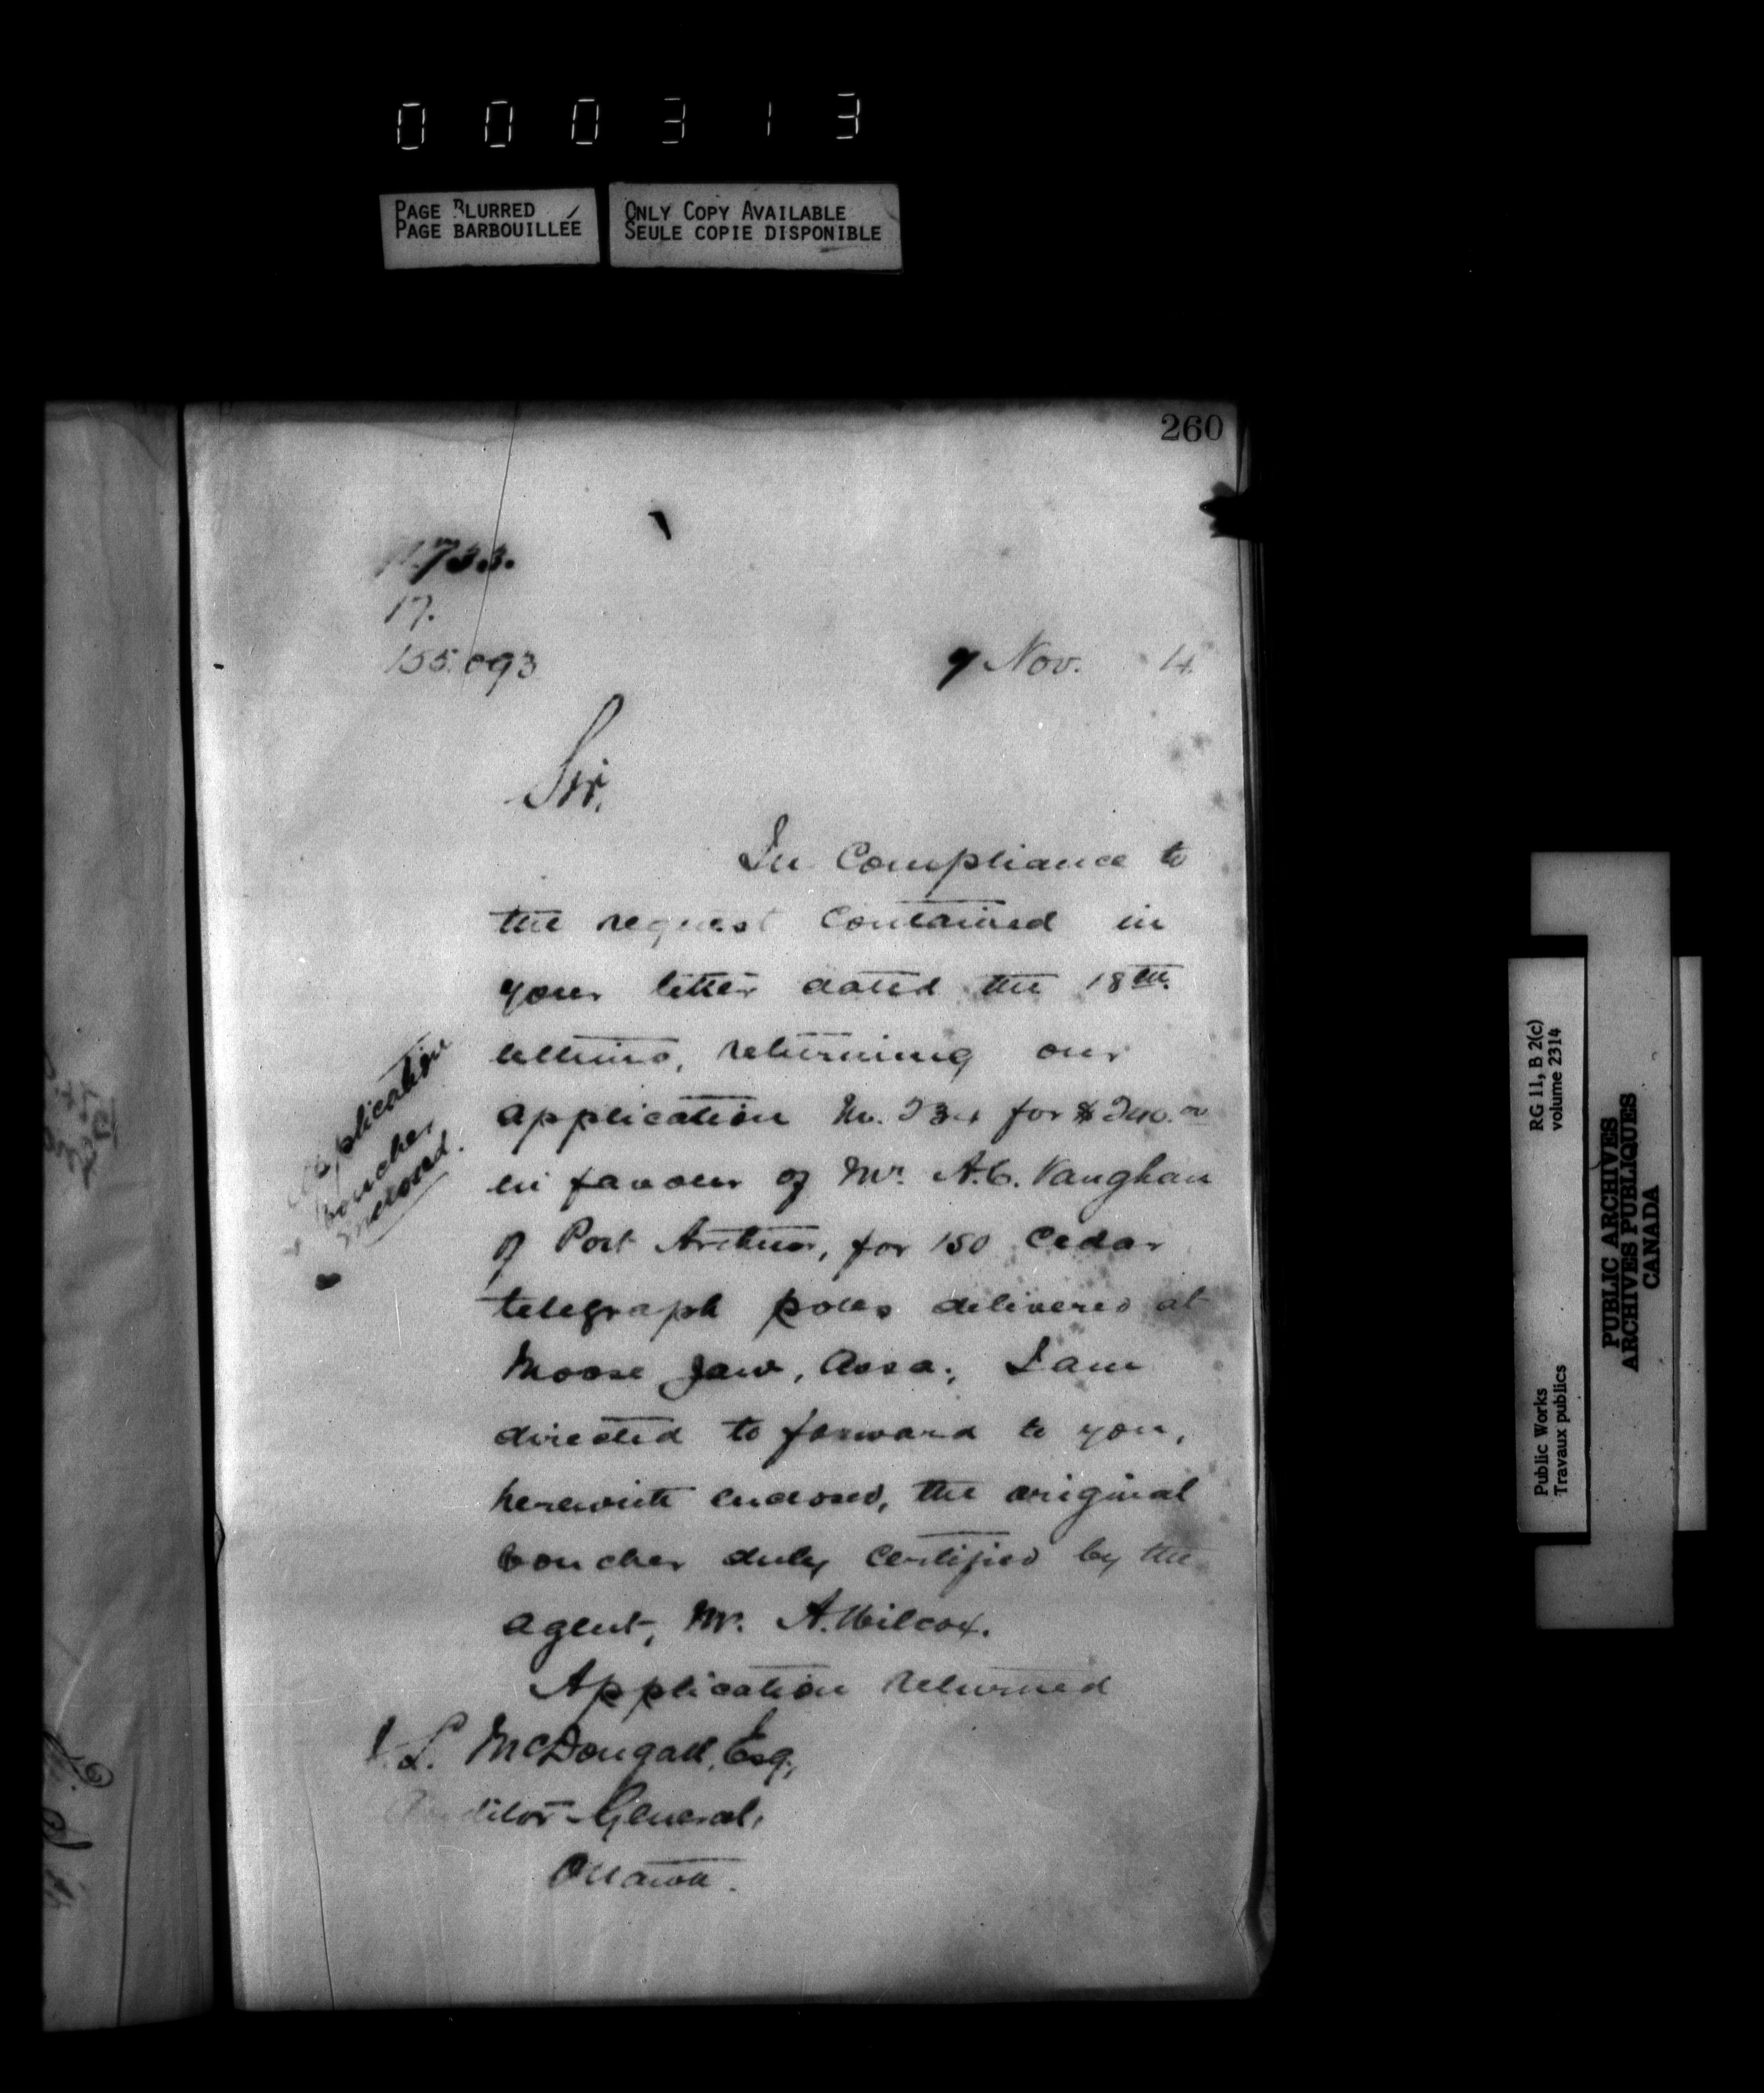 000313
PAGE BLURRED
PAGE BARBOUILLÉE
ONLY COPY AVAILABLE
SEULE COPIE DISPONIBLE
260
733.
17.
155.093
9 Nov. 4.
Sir,
In Compliance to
the request contained in
your letter dated the 18th
ultimo, returning our
application No. 234 for $240.00
in favour of Mr. A.C. Vaughan
of Port Arthur, for 150 Cedar
telegraph poles delivered at
Moose Jaw, Assa; I am
directed to forward to you,
herewith enclosed, the original
voucher duly certified by the
agent, Mr. A. Wilcox.
Application returned
Application
voucher
enclosed.
J. L. McDougall, Esq.,
Auditor-General,
Ottawa.
RG 11, B 2(c)
volume 2314
Public Works
Travaux publics
PUBLIC ARCHIVES
ARCHIVES PUBLIQUES
CANADA